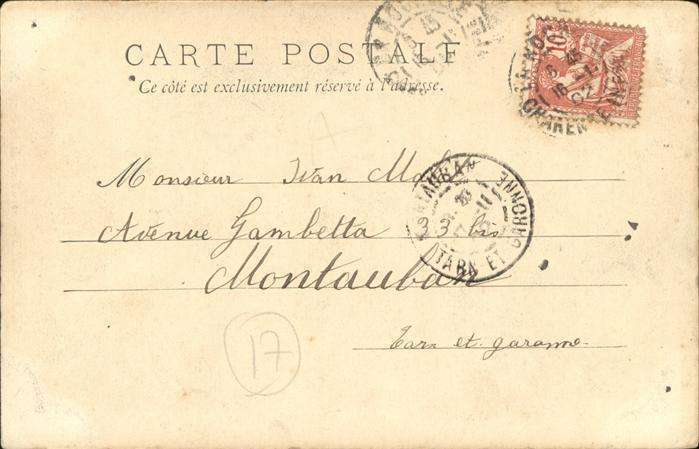 CARTE POSTALE
Ce côté est exclusivement réservé à l'adresse.
10
Monsieur Ivan
Avenue Gambetta 33 bis
Montauban
Tarn et garonne.
MONTAUBAN
TARN ET GARONNE
17